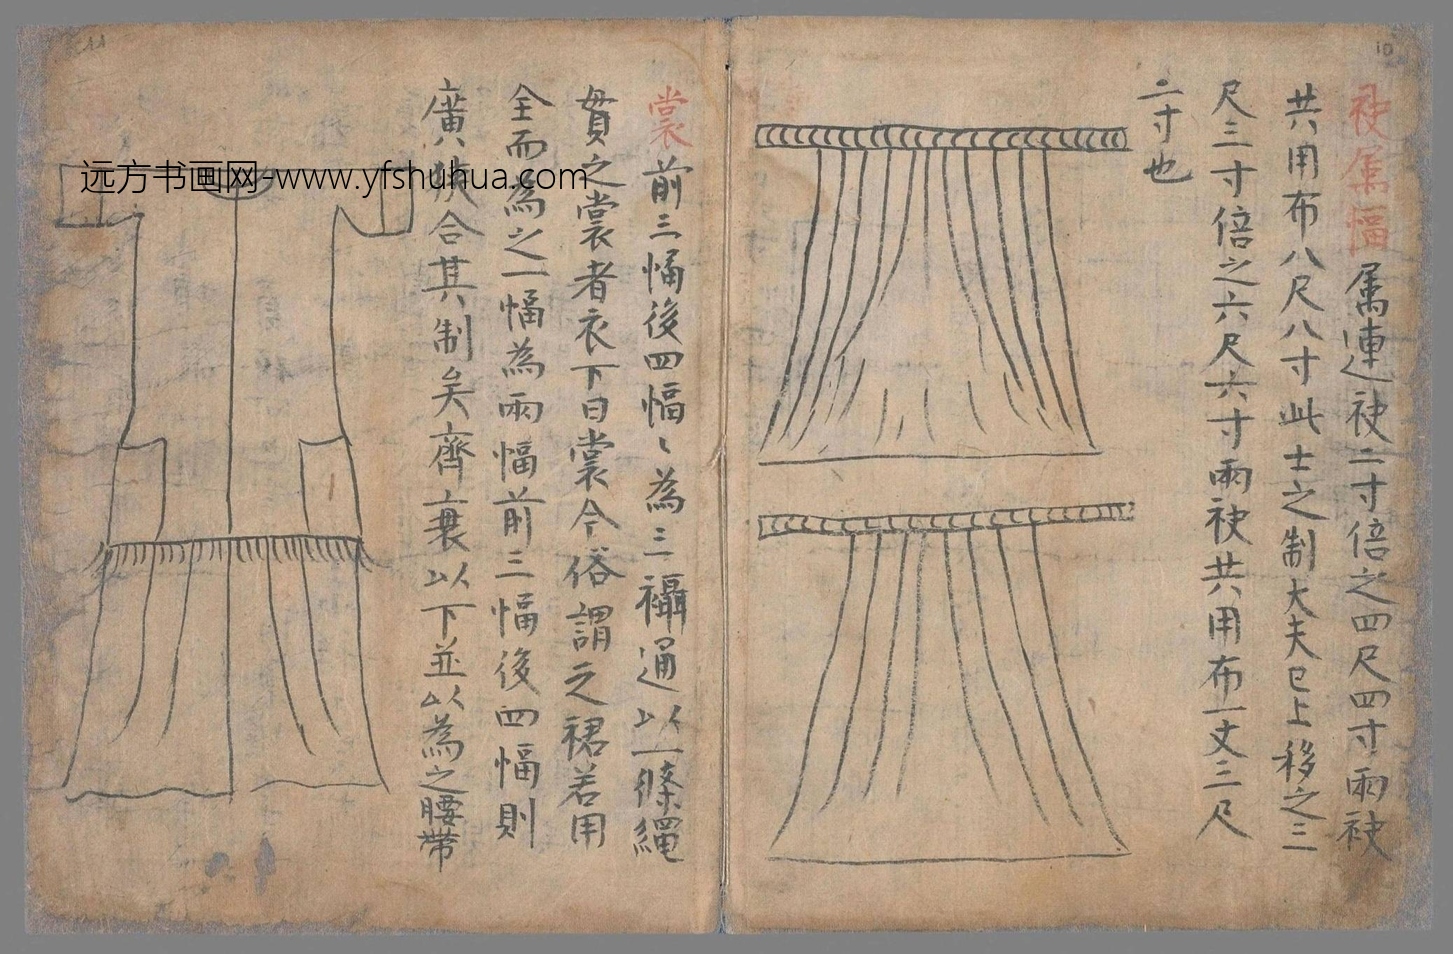 10
袂属幅 属連袂二寸倍之四尺四寸兩袂
共用布八尺八寸此士之制大夫已上移之三
尺三寸倍之六尺六寸兩袂共用布一丈三尺
二寸也
裳 前三幅後四幅〻為三襵通以一條繩
貫之裳者衣下曰裳今俗謂之裙若用
全而為之一幅為兩幅前三幅後四幅則
廣狹合其制矣齊衰以下並以為之腰帶
11
远方书画网-www.yfshuhua.com